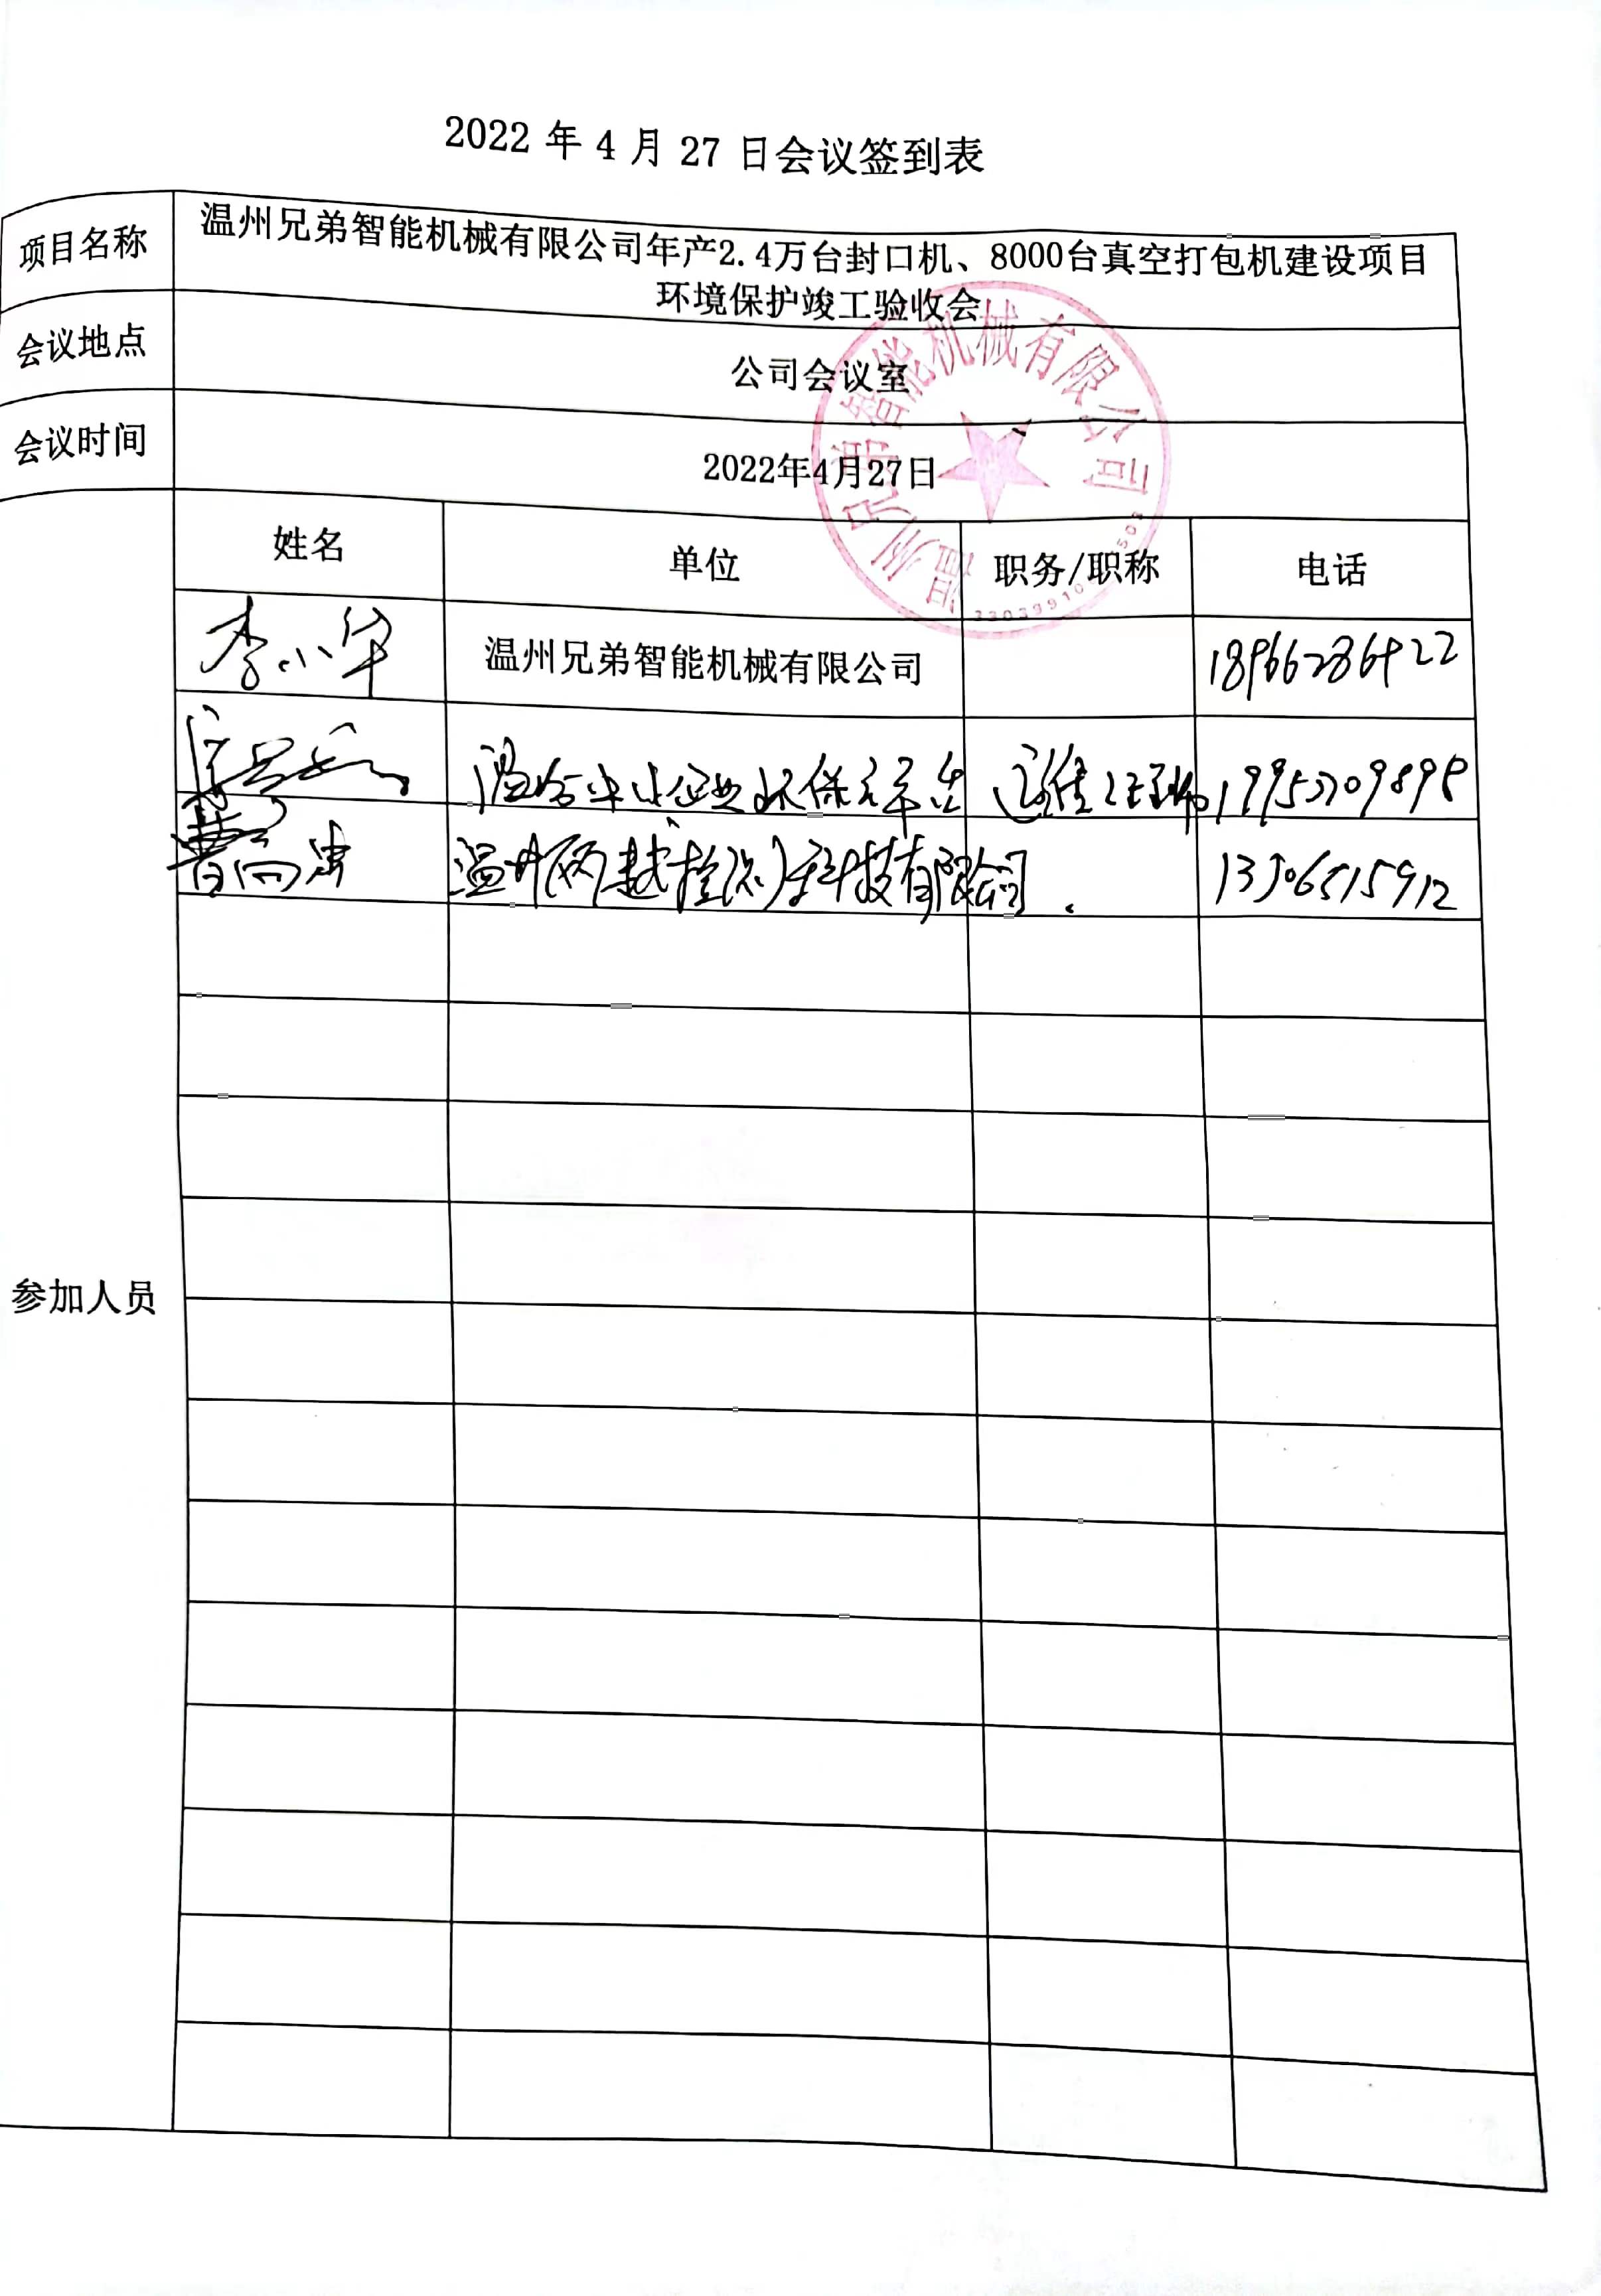 2022 年 4 月 27 日会议签到表
项目名称
温州兄弟智能机械有限公司年产2.4万台封口机、8000台真空打包机建设项目
环境保护竣工验收会
会议地点
公司会议室
会议时间
2022年4月27日
温州兄弟智能机械有限公司
姓名 单位 职务/职称 电话
李小华 温州兄弟智能机械有限公司
温州中小企业环保 19953709898
曹高忠 温州两越检测科技有限公司. 13506515912
参加人员